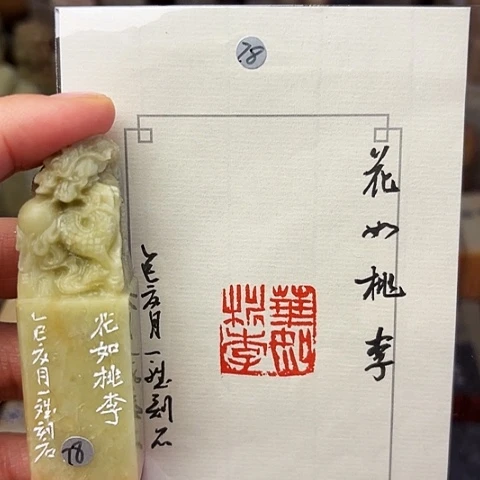 78
花如桃李
華如
桃李
乙巳亥月一刻石
花如桃李
乙巳亥月一刻石
78